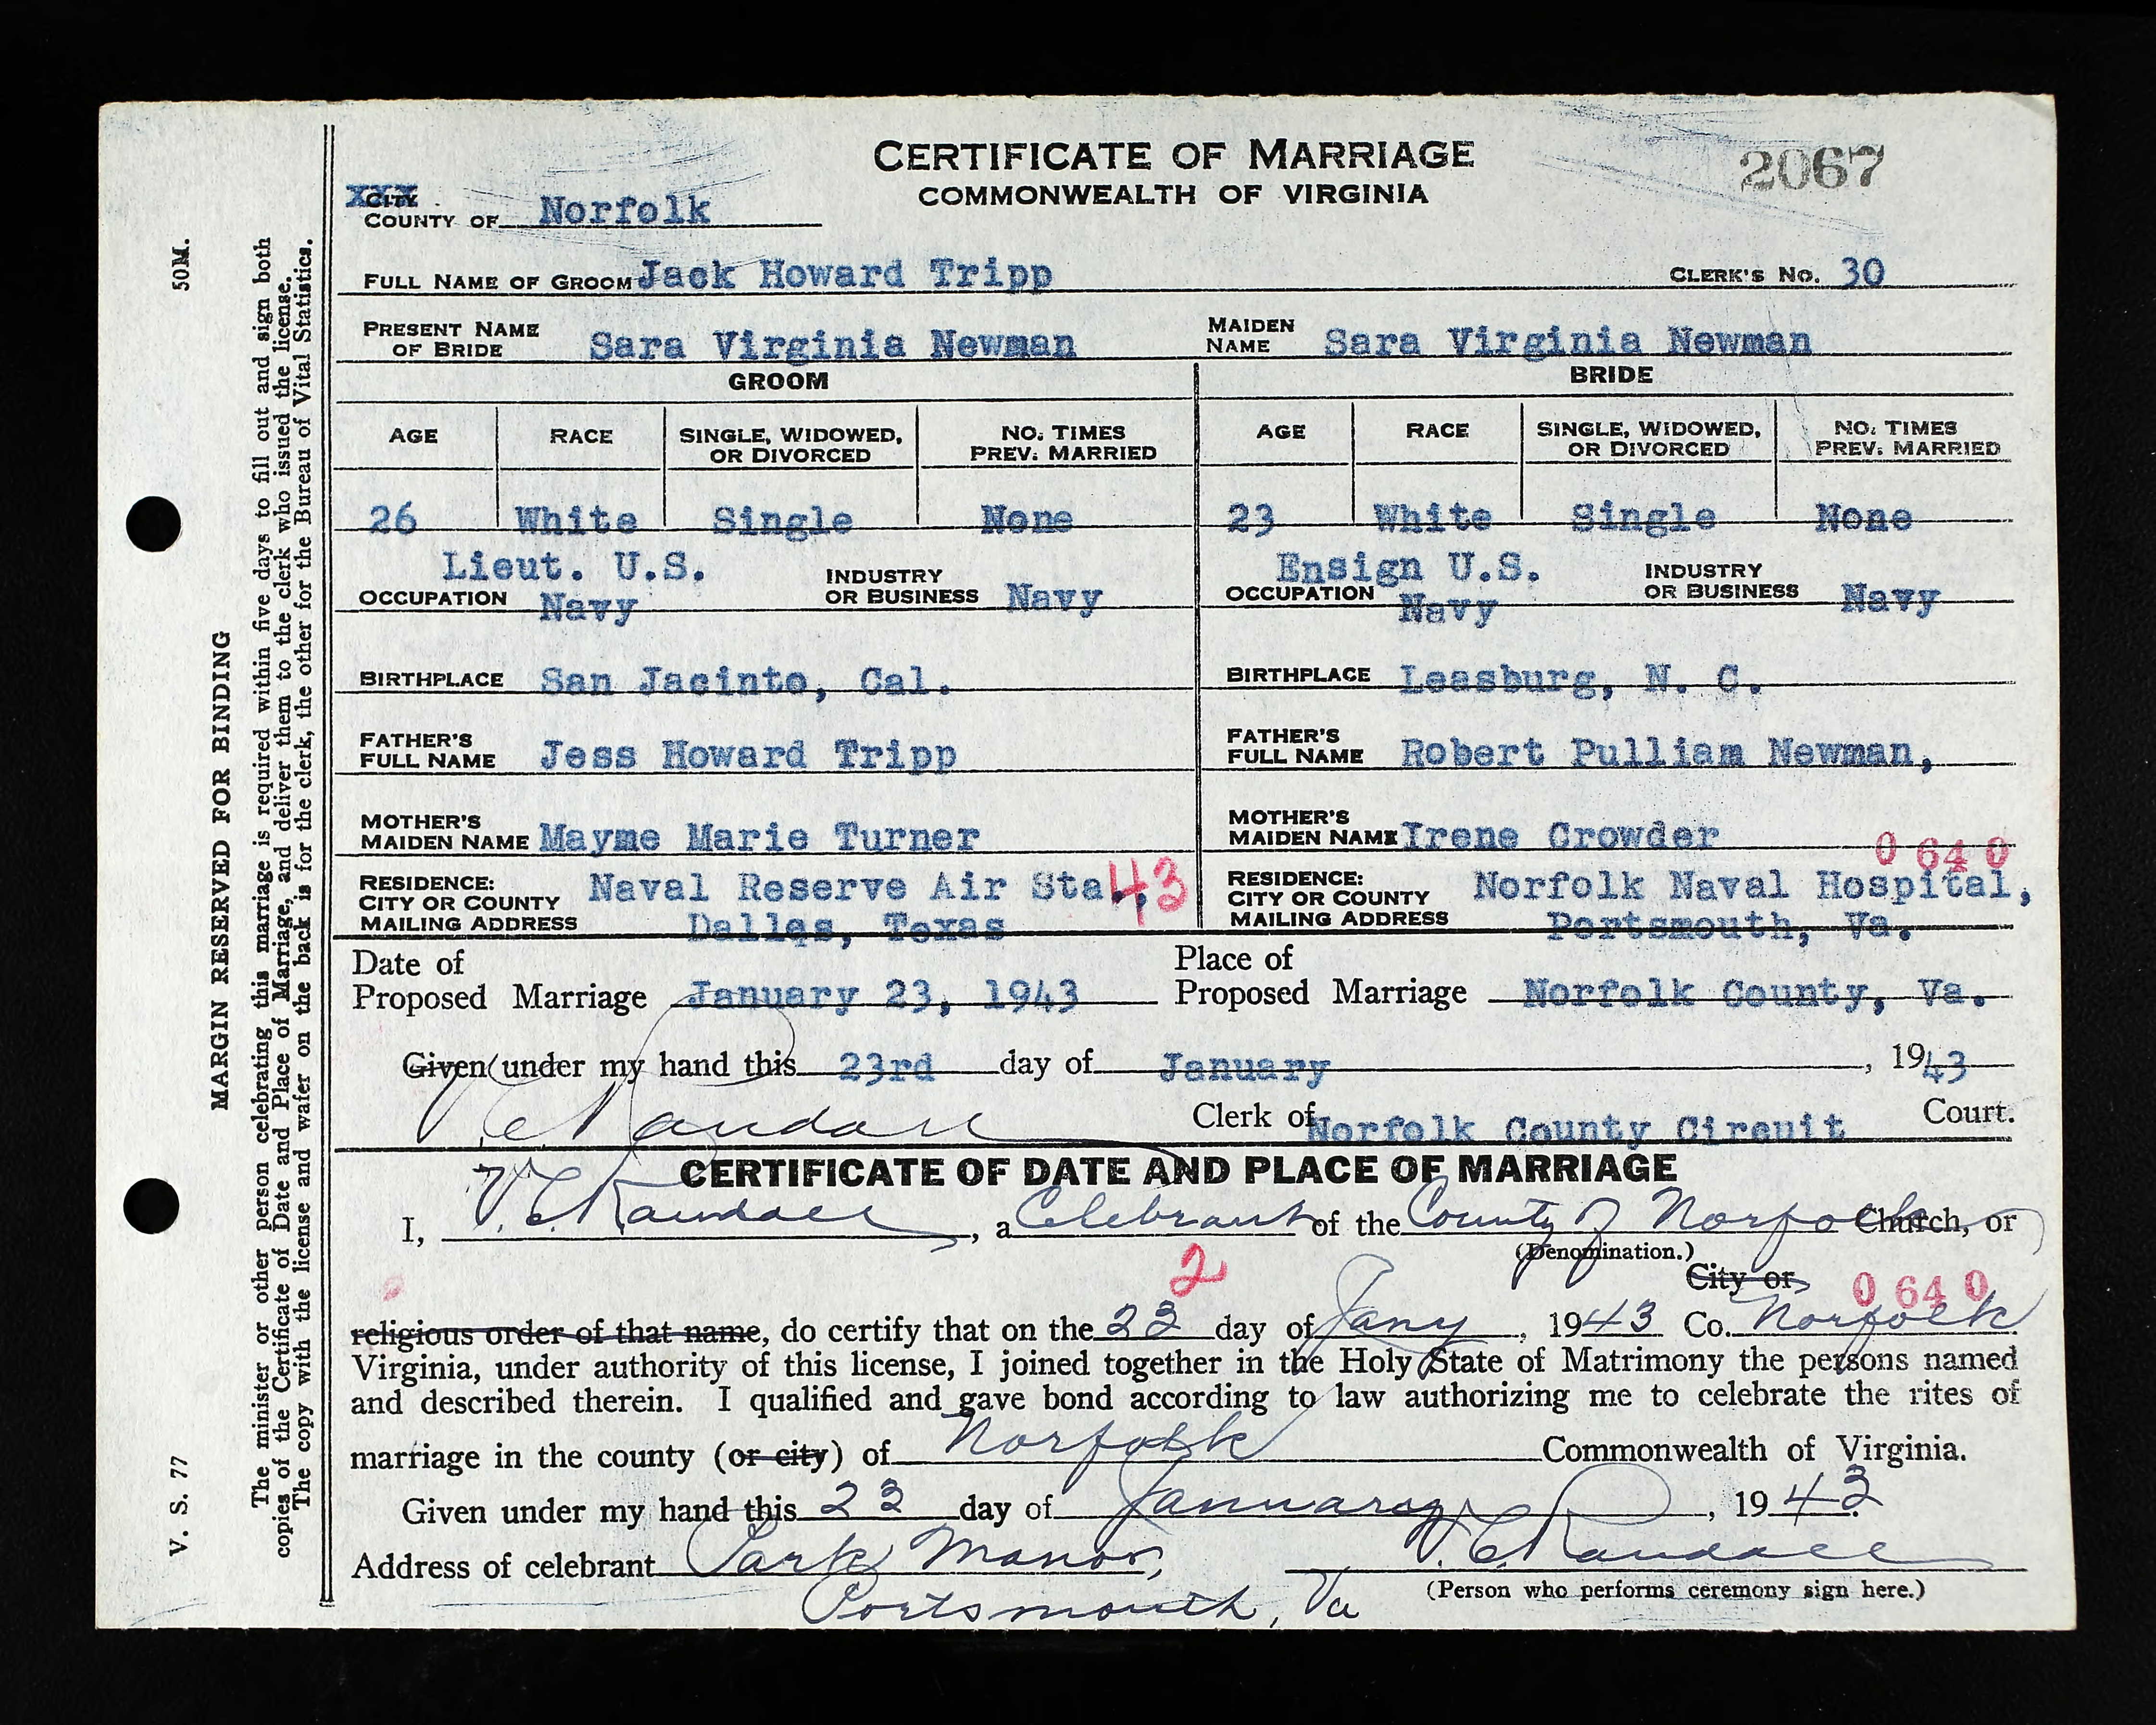 CERTIFICATE OF MARRIAGE
COMMONWEALTH OF VIRGINIA
2067
XXX
CITY
COUNTY OF Norfolk
FULL NAME OF GROOM Jack Howard Tripp CLERK'S No. 30
PRESENT NAME OF BRIDE Sara Virginia Newman MAIDEN NAME Sara Virginia Newman
GROOM BRIDE
AGE RACE SINGLE, WIDOWED, OR DIVORCED NO. TIMES PREV. MARRIED AGE RACE SINGLE, WIDOWED, OR DIVORCED NO. TIMES PREV. MARRIED
26 White Single None 23 White Single None
OCCUPATION Lieut. U.S. Navy INDUSTRY OR BUSINESS Navy OCCUPATION Ensign U.S. Navy INDUSTRY OR BUSINESS Navy
BIRTHPLACE San Jacinto, Cal. BIRTHPLACE Leasburg, N. C.
FATHER'S FULL NAME Jess Howard Tripp FATHER'S FULL NAME Robert Pulliam Newman,
MOTHER'S MAIDEN NAME Mayme Marie Turner MOTHER'S MAIDEN NAME Irene Crowder
0 64 0
RESIDENCE: CITY OR COUNTY MAILING ADDRESS Naval Reserve Air Sta., Dallas, Texas 43 RESIDENCE: CITY OR COUNTY MAILING ADDRESS Norfolk Naval Hospital, Portsmouth, Va.
Date of Proposed Marriage January 23, 1943 Place of Proposed Marriage Norfolk County, Va.
Given under my hand this 23rd day of January, 1943
V. C. Randall Clerk of Norfolk County Circuit Court.
CERTIFICATE OF DATE AND PLACE OF MARRIAGE
I, V. C. Randall, a Celebrant of the County of Norfolk Church, or
(Denomination.)
2
City or
0 64 0
religious order of that name, do certify that on the 23 day of Jany, 1943 Co. Norfolk
Virginia, under authority of this license, I joined together in the Holy State of Matrimony the persons named
and described therein. I qualified and gave bond according to law authorizing me to celebrate the rites of
marriage in the county (or city) of Norfolk Commonwealth of Virginia.
Given under my hand this 23 day of January, 1943.
Address of celebrant Park Manor, V. C. Randall
Portsmouth, Va (Person who performs ceremony sign here.)
V. S. 77 MARGIN RESERVED FOR BINDING 50M.
The minister or other person celebrating this marriage is required within five days to fill out and sign both
copies of the Certificate of Date and Place of Marriage, and deliver them to the clerk who issued the license.
The copy with the license and wafer on the back is for the clerk, the other for the Bureau of Vital Statistics.